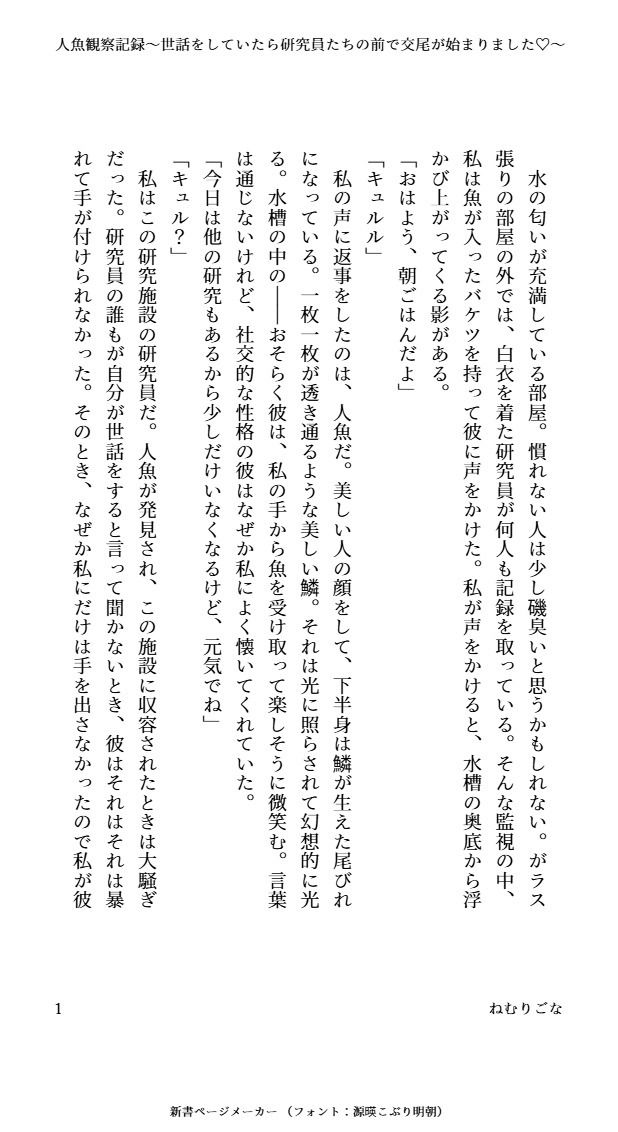 人魚観察記録～世話をしていたら研究員たちの前で交尾が始まりました♡～
　水の匂いが充満している部屋。慣れない人は少し磯臭いと思うかもしれない。がラス
張りの部屋の外では、白衣を着た研究員が何人も記録を取っている。そんな監視の中、
私は魚が入ったバケツを持って彼に声をかけた。私が声をかけると、水槽の奥底から浮
かび上がってくる影がある。
「おはよう、朝ごはんだよ」
「キュルル」
　私の声に返事をしたのは、人魚だ。美しい人の顔をして、下半身は鱗が生えた尾びれ
になっている。一枚一枚が透き通るような美しい鱗。それは光に照らされて幻想的に光
る。水槽の中の――おそらく彼は、私の手から魚を受け取って楽しそうに微笑む。言葉
は通じないけれど、社交的な性格の彼はなぜか私によく懐いてくれていた。
「今日は他の研究もあるから少しだけいなくなるけど、元気でね」
「キュル？」
　私はこの研究施設の研究員だ。人魚が発見され、この施設に収容されたときは大騒ぎ
だった。研究員の誰もが自分が世話をすると言って聞かないとき、彼はそれはそれは暴
れて手が付けられなかった。そのとき、なぜか私にだけは手を出さなかったので私が彼
1
ねむりごな
新書ページメーカー（フォント：源暎こぶり明朝）